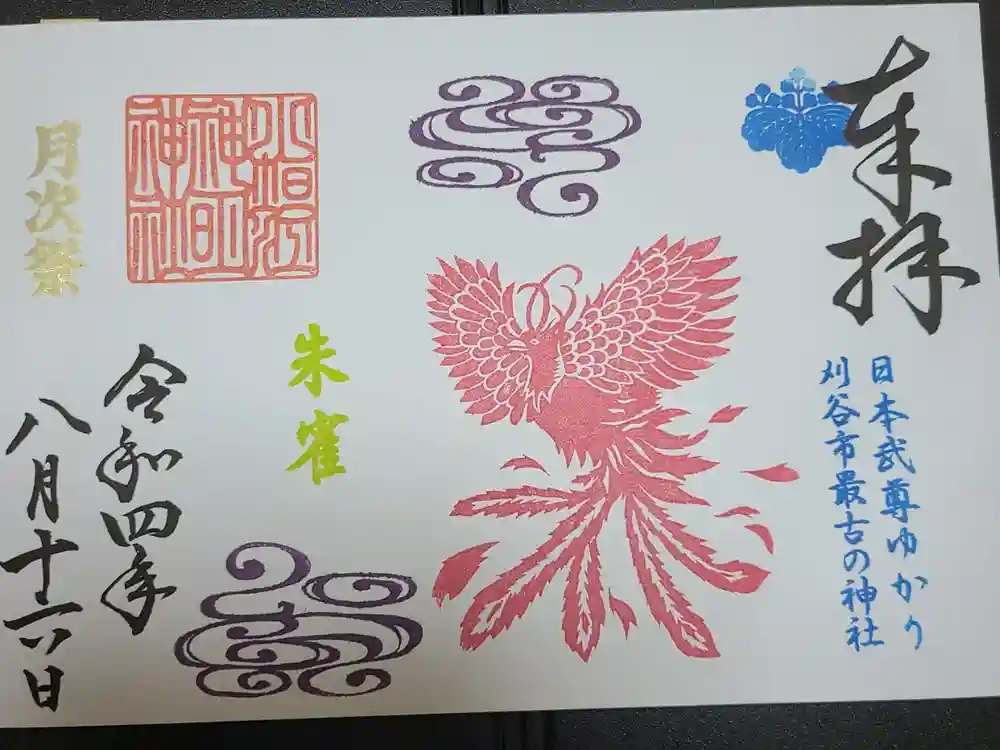 奉拝
日本武尊ゆかり
刈谷市最古の神社
小垣江
神明
神社
朱雀
令和四年
八月十六日
月次祭